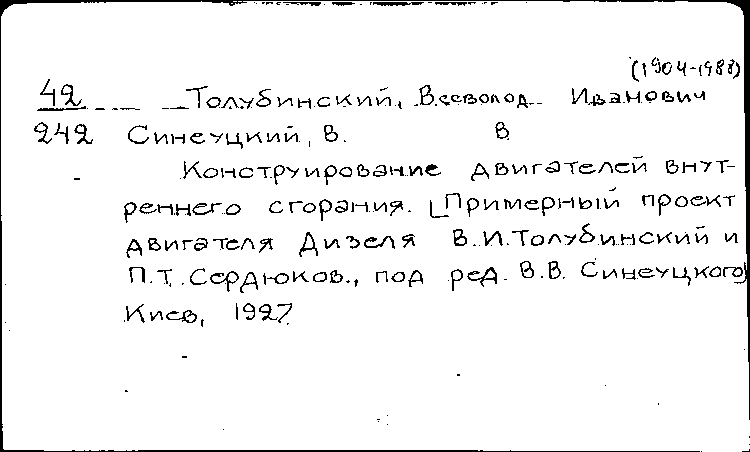 (1904-1988)
42 Толубинский, Всеволод Иванович
242 Синеуцкий, В. В
Конструирование двигателей внут-
реннего сгорания. [Примерный проект
двигателя Дизеля В.И.Толубинский и
П.Т. Сердюков., под ред. В.В. Синеуцкого
Киев, 1927